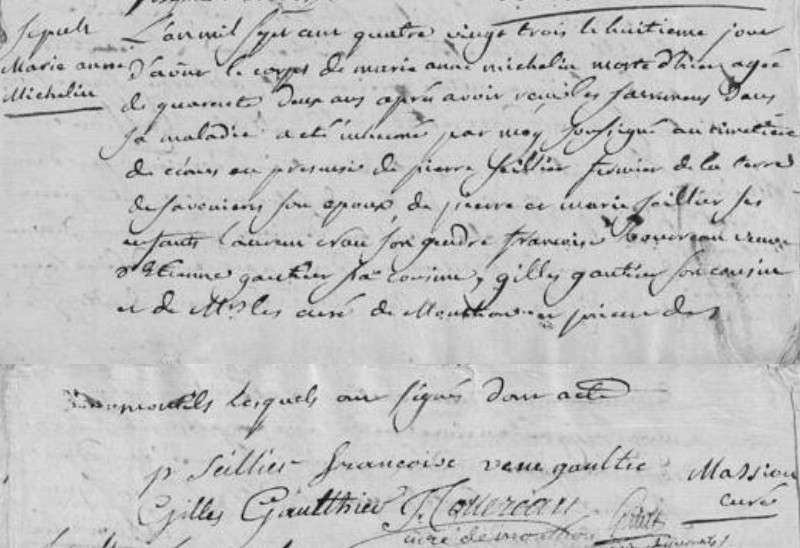 sepult
Marie anne
Michelin
L'an mil sept cent quatre vingt trois le huitieme jour
d'aout le corps de marie anne michelin morte d'hier agée
de quarente deux ans après avoir reçu les sacremens dans
sa maladie a été inhumé par moy soussigné au cimetière
de ceans en presence de pierre seillier fermier de la terre
de savoniere son epoux, de pierre et marie seillier ses
enfants laurent crau son gendre francoise Touereau veuve
d'Etienne gautier sa cousine, gilles gautier son cousin
et de Mrs les curé de Mouthou et prieur des
lesquels ont signés dont acte
p Seillier francoise veuve gaultie Massiou
Gilles Gaulthier J. Touereau curé
curé de mouthou